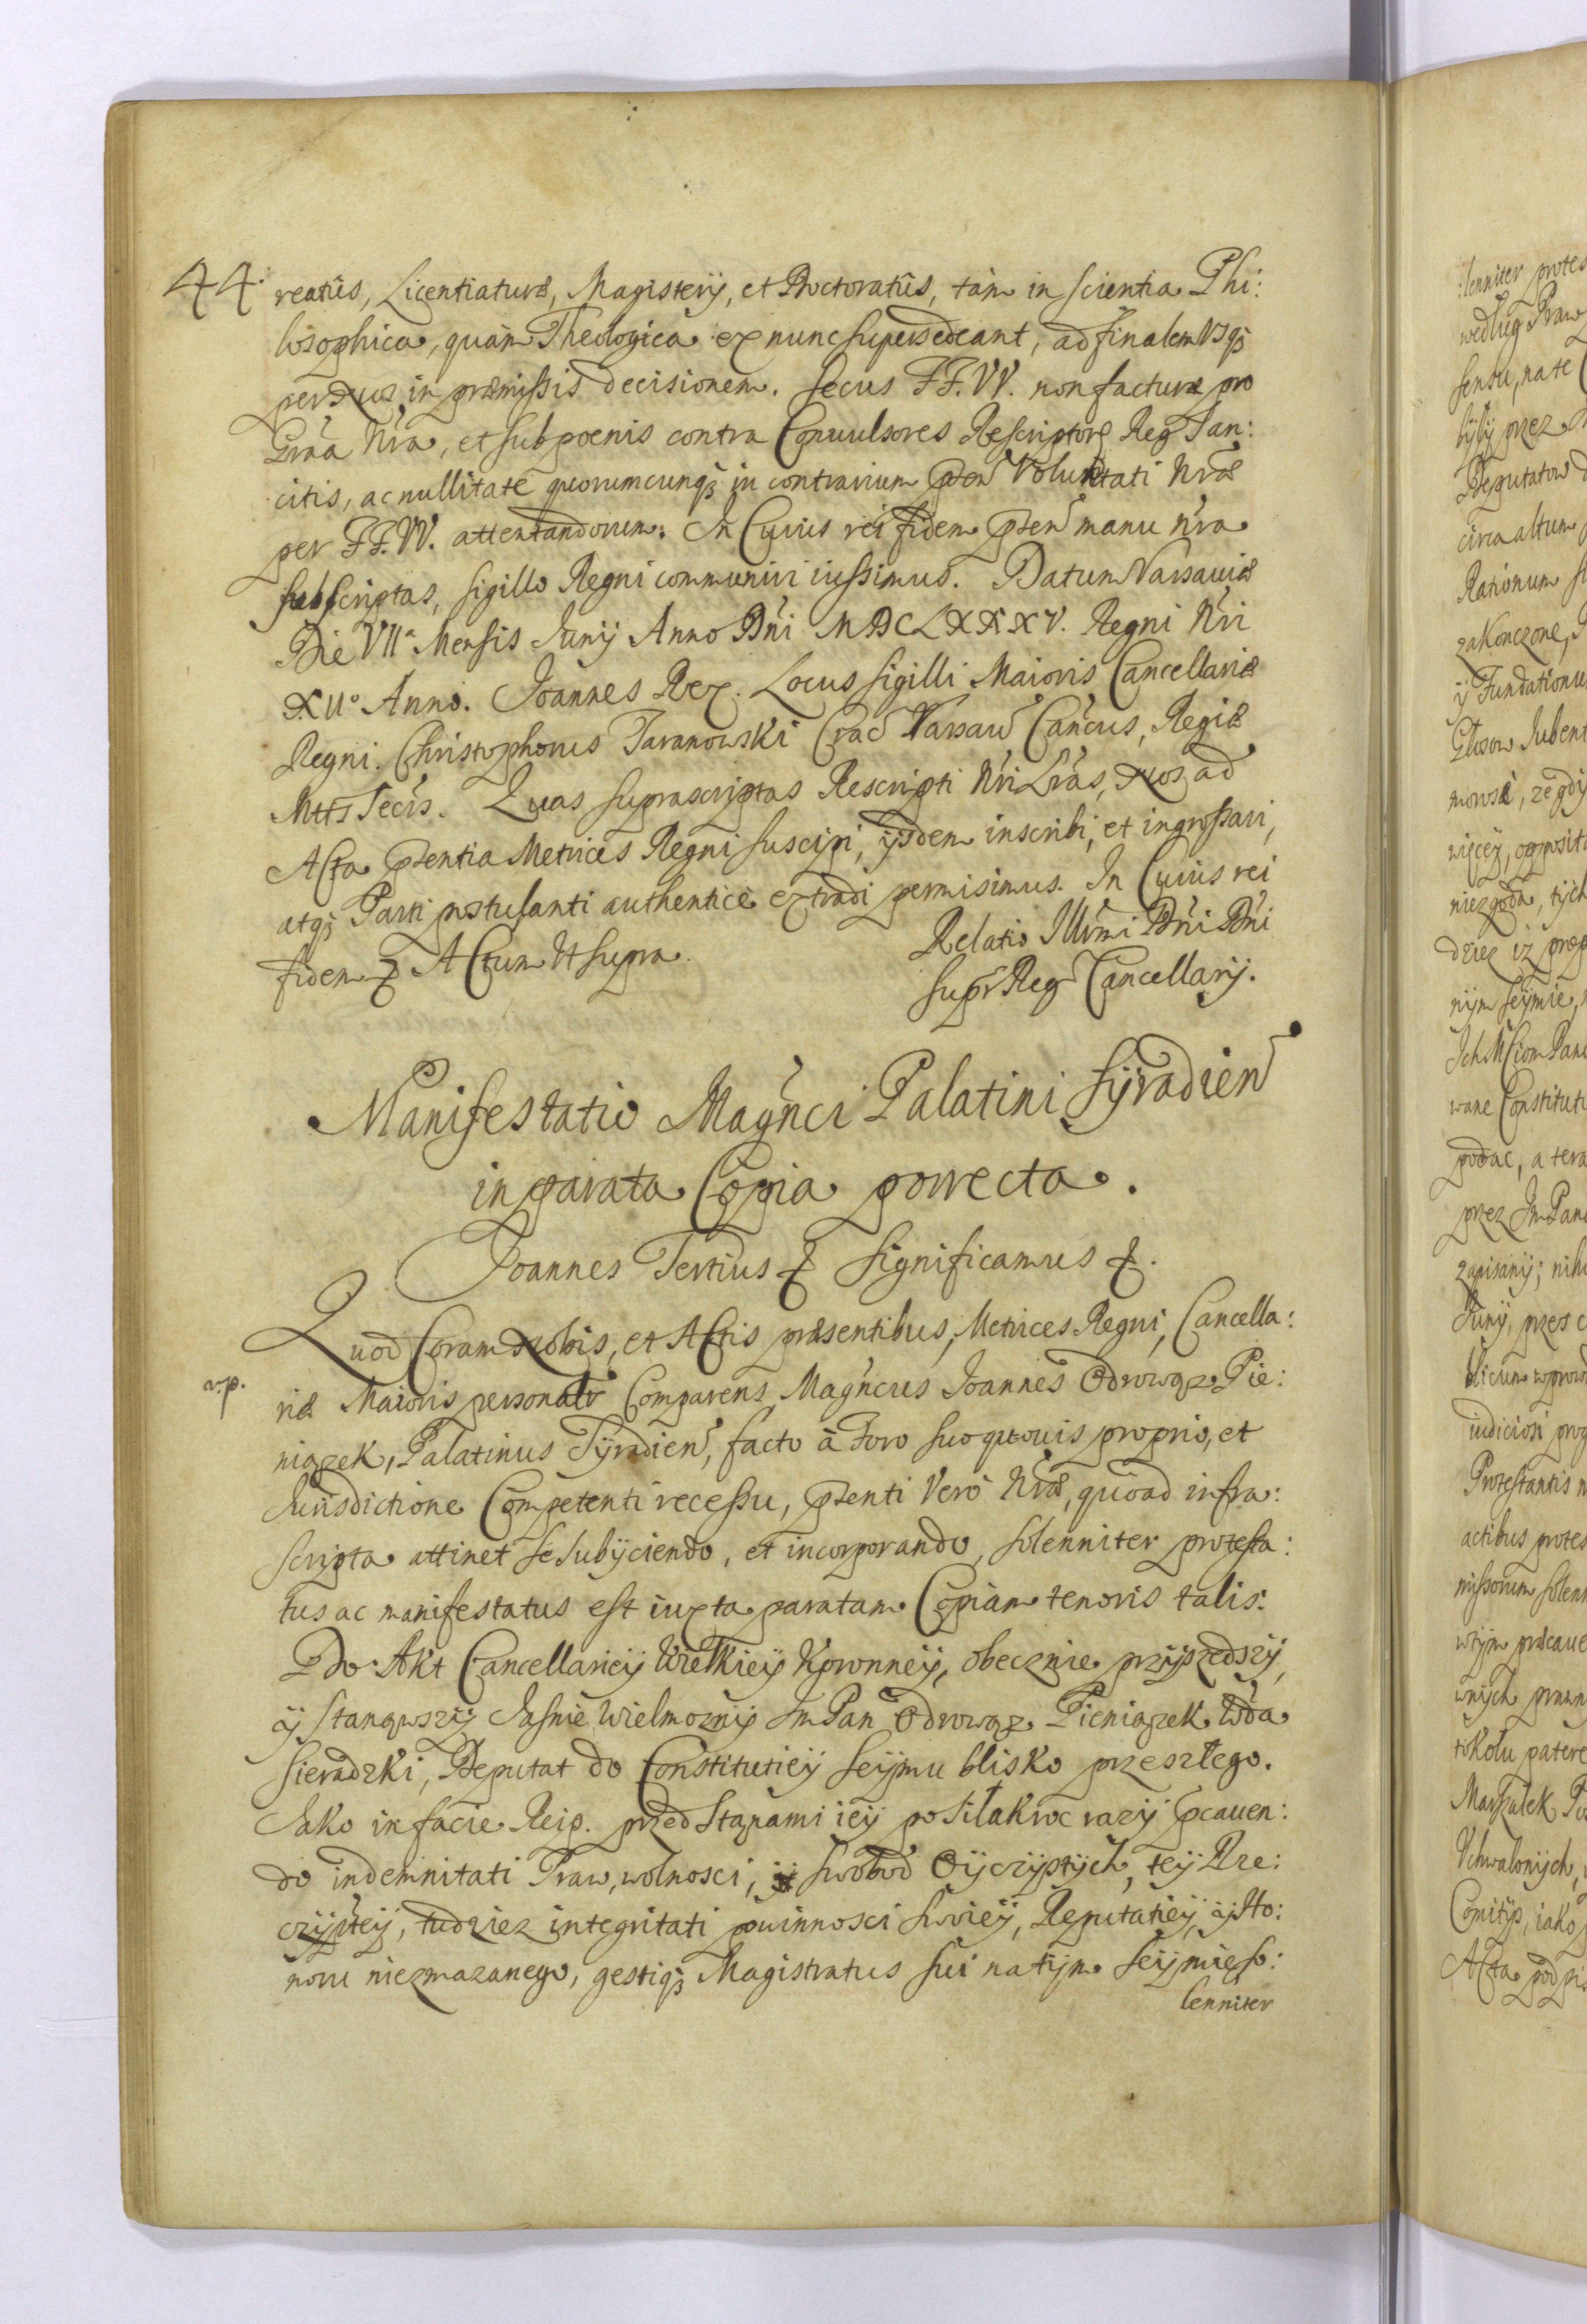 44.
reatûs, Licentiaturæ, Magisterij, et Doctoratûs, tàm in scientia Phi:
losophica, quàm Theologica ex nunc supersedeant, ad finalem Vsqȝ
per Nos in præmissis decisionem. Secus FF.VV. non facturæ pro
Grãa Nrã, et sub poenis contra Convulsores Rescriptorũ Reg San:
citis, ac nullitatẽ quorumcunqȝ in contrarium pñ Voluntati Nræ
per FF.VV. attentandorum. In Cuius rei fidem pñ manu nrã
subscriptas, sigillo Regni communiri iussimus. Datum Varsaviæ
Die VIIa Mensis Junij Anno Dñi MDCLXXXV. Regni Nri
XIIo Anno. Joannes Rex. Locus Sigilli Maioris Cancellariæ
Regni. Christophorus Taranowski Crac Varsav Cancus, Regiæ
Mttis Secrs. Quas suprascriptas Rescripti Nri Lrãs, Nos ad
Acta pñtia Metrices Regni suscipi, ijsdem inscribi, et ingrossari,
atqȝ Parti postulanti authenticè extradi permisimus. In Cuius rei
fidem & Actum Ut supra.
Relatio Illrmi Dñi Dñi
Supr Reg Cancellarij.
Manifestatio Magnci Palatini Syradien
in parata Copia porrecta.
Joannes Tertius & Significamus &.
Quod Coram Nobis, et Actis præsentibus, Metrices Regni, Cancella:
v.p.
riæ Maioris personalr Comparens Magncus Joannes Odrowąz Pie:
niązek, Palatinus Syradien, facto à Foro suo quovis proprio, et
Jurisdictione Competenti recessu, pñti Verò Nræ, quoad infra:
scripta attinet se subijciendo, et incorporando, solenniter protesta:
tus ac manifestatus est iuxta paratam Copiam tenoris talis:
Do Akt Cancellariey Wielkiey Koronney, obecznie przyszedszy,
y stanąwszy Jasnie Wielmozny Im Pan Odrowąz Pieniązek Wda
Sieradzki, Deputat do Constitutiey Seymu blisko przeszłego.
Jako in facie Reip. przed Stanami iey po kilakroc razy pcaven:
do indemnitati Praw, wolnosci, y Swobod Oyczystych, tey Rze:
czyptey, tudziez integritati powinnosci Swoiey, Reputatiey, y Ho:
noru niezmazanego, gestiqȝ Magistratus sui na tym Seymie so:
lenniter